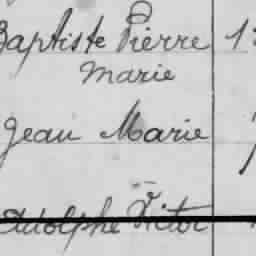 Baptiste Pierre
Marie
Jean Marie
Adolphe Victor